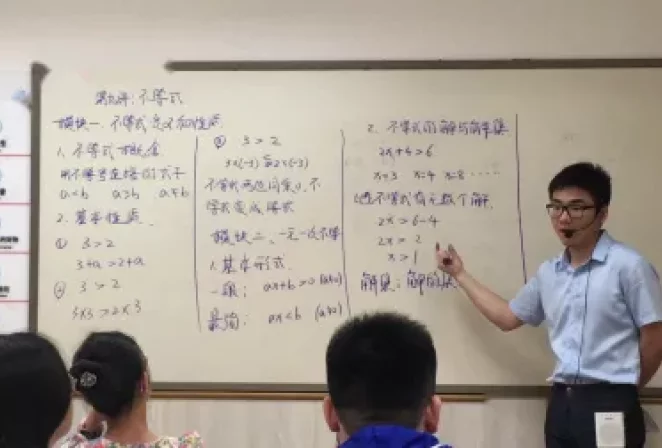 第九讲:不等式
模块一、不等式定义和性质
1、不等式概念
用不等号连接的式子
a<b a>b a≠b
2、基本性质
① 3>2
3+a>2+a
② 3>2
3×3>2×3
③ 3>2
3×(-3) 2×(-3)
不等式两边同乘 不
等式变成
模块二、一元一次不等
1、基本形式
一般: ax+b>0 (a≠0)
最简: ax<b (a≠0)
2、不等式的解与解集
2x+4>6
x=3 x=4 x=8 ....
不等式有无数个解
2x>6-4
2x>2
x>1
解集:解的